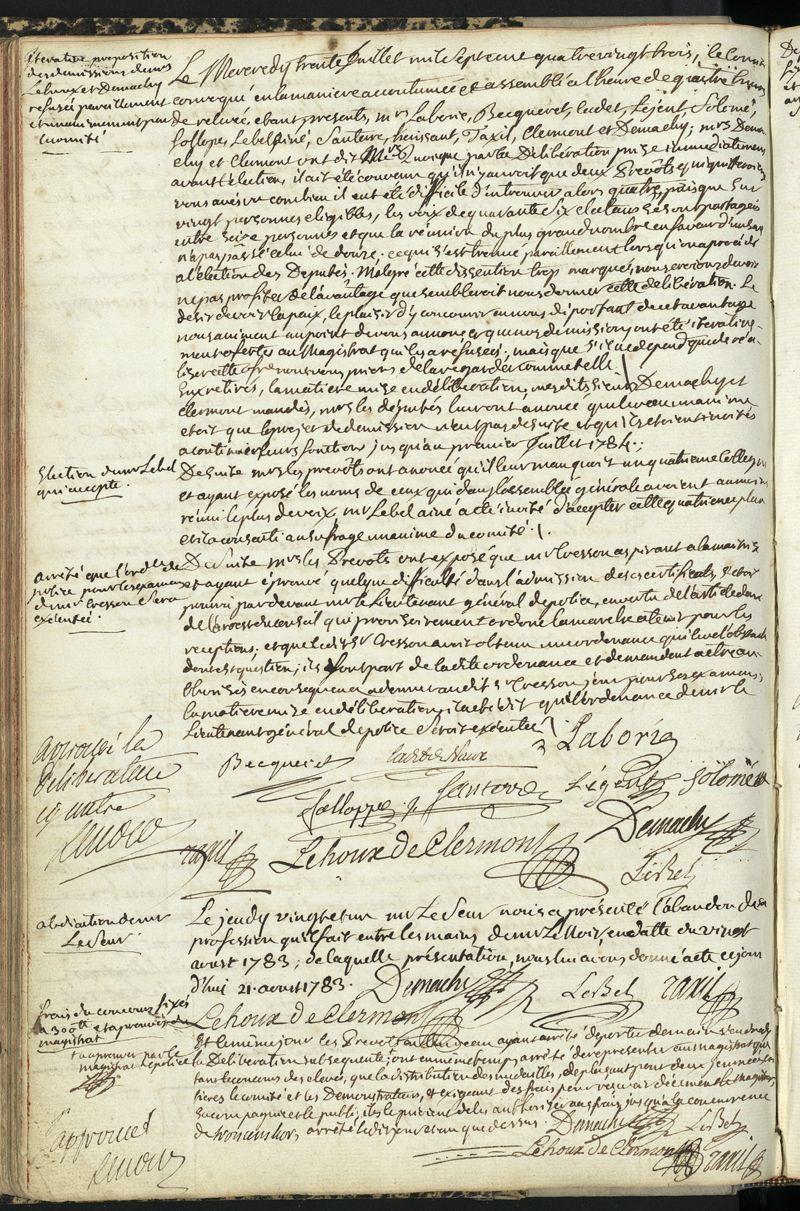 itérative proposition
des demissions de mrs
Lehoux et Demachy
refusée pareillement
et unanimement par
le comité
Le Mercredy trente Juillet mil sept cent quatre vingt trois, le Comité
convoqué en la maniere accoutumée et assemblé a l'heure de quatre heures
de relevée, etant presents, mrs Laborie, Becqueret, Cadet, Léjent, Solomé,
Salloppe, Lebel ainé, Santerre, hérissant, Taxil, Clermont et Demachy; mrs Dema
chy et Clermont ont dit Mrs quoique par la Deliberation prise immediatement
avant l'élection, il ait été convenu qu'il n'y auroit que deux Prevôts
vous avés vu combien il eut eté difficile d'en trouver alors quatre, puisque sur
vingt personnes eligibles, les voix de quarante six electeurs se sont partagées
entre seize personnes et que la réunion du plus grand nombre en faveur d'un seul
n'a pas passé celui de douze, ce qui s'est trouvé pareillement lorsqu'on a procédé
a l'élection des Deputés. Malgré cette dissention trop marquée, nous croirions devoir
ne pas profiter de l'avantage que sembleroit nous donner cette deliberation. Le
desir de voir la paix, le plaisir d'y concourir en nous départant de cet avantage
nous animent au point de vous annoncer que nos demissions ont été itérative-
ment offertes au Magistrat qui les a refusées; mais que s'il ne depend que de réa-
liser cette offre nous vous prions de la regarder comme telle.
Eux retirés, la matiere mise en délibération, mesdits sieurs Demachy et
Clermont mandés, mrs les députés leur ont anoncé que le vœu unanime
etoit que le projet de demission n'eut pas de suite et qu'ils etoient invités
a continuer leurs fonctions jusqu'au premier Juillet 1784.
Election de mr Lebel
qui accepte.
De suite mrs les prevôts ont anoncé qu'il leur manquoit un quatrieme collegue
et ayant exposé les noms de ceux qui dans l'assemblée générale avoient aumoins
réuni le plus de voix mr Lebel ainé a été invité d'accepter cette quatrieme place
et il a consenti au suffrage unanime du comité.
arrêté que l'ordce de
police pour les examens
de mr Cresson sera
exécutée.
De suite mrs les Prevots ont exposé que mr Cresson aspirant a la maitrise
et ayant éprouvé quelque difficulté dans l'admission de ses certificats, s'etoit
pourvu par devant mr le Lieutenant général de police, en vertu de l'article
de l'arrest du conseil qui provisoirement ordonne la marche a tenir pour les
receptions, et que ledit sr Cresson avoit obtenu une ordonance qui leve l'obstacle
dont est question; ils font part de ladite ordonance et demandent a etre au-
thorisés en consequence a donner audit sr Cresson, jour pour ses examens;
la matiere mise en délibération, il a été dit que l'ordonance de mr le
Lieutenant général de police seroit exécutée
approuvé la
délibération
cy contre
Lenoir
Laborie
Becqueret
Cadet de Vaux
Salloppe
Santerre
Légent
Solomé
taxil
Lehoux de Clermont
Demachy
LeBel
abdication de mr
Le Seur
Le jeudy vingt et un mr Le Seur nous a présenté l'abandon de sa
profession qu'il fait entre les mains de mr Le Noir, en datte du vingt
aoust 1783; de laquelle présentation, nous lui avons donné acte ce jour
d'hui 21. aoust 1783.
Demachy
LeBel
taxil
Lehoux de Clermont
frais du concours fixés
a 300tt et approuvés du
magistrat
approuvé par le
magistrat de police
Et le même jour les Prevôts ayant arrêté de porter demain vendredy
la Deliberation subsequente, ont en meme temps arrêté de representer au magistrat que
tant le concours des eleves, que la distribution des medailles, deplaçant pour deux jours
le comité et les Demonstrateurs, et exigeant des frais pour recevoir décemment le magistrat,
sa compagnie et le public, ils le prieront de les authoriser aux frais jusqu'a la concurrence
de trois cens livres, arrêté ledit jour et an que dessus.
Demachy
LeBel
Lehoux de Clermont
taxil
approuvé
Lenoir